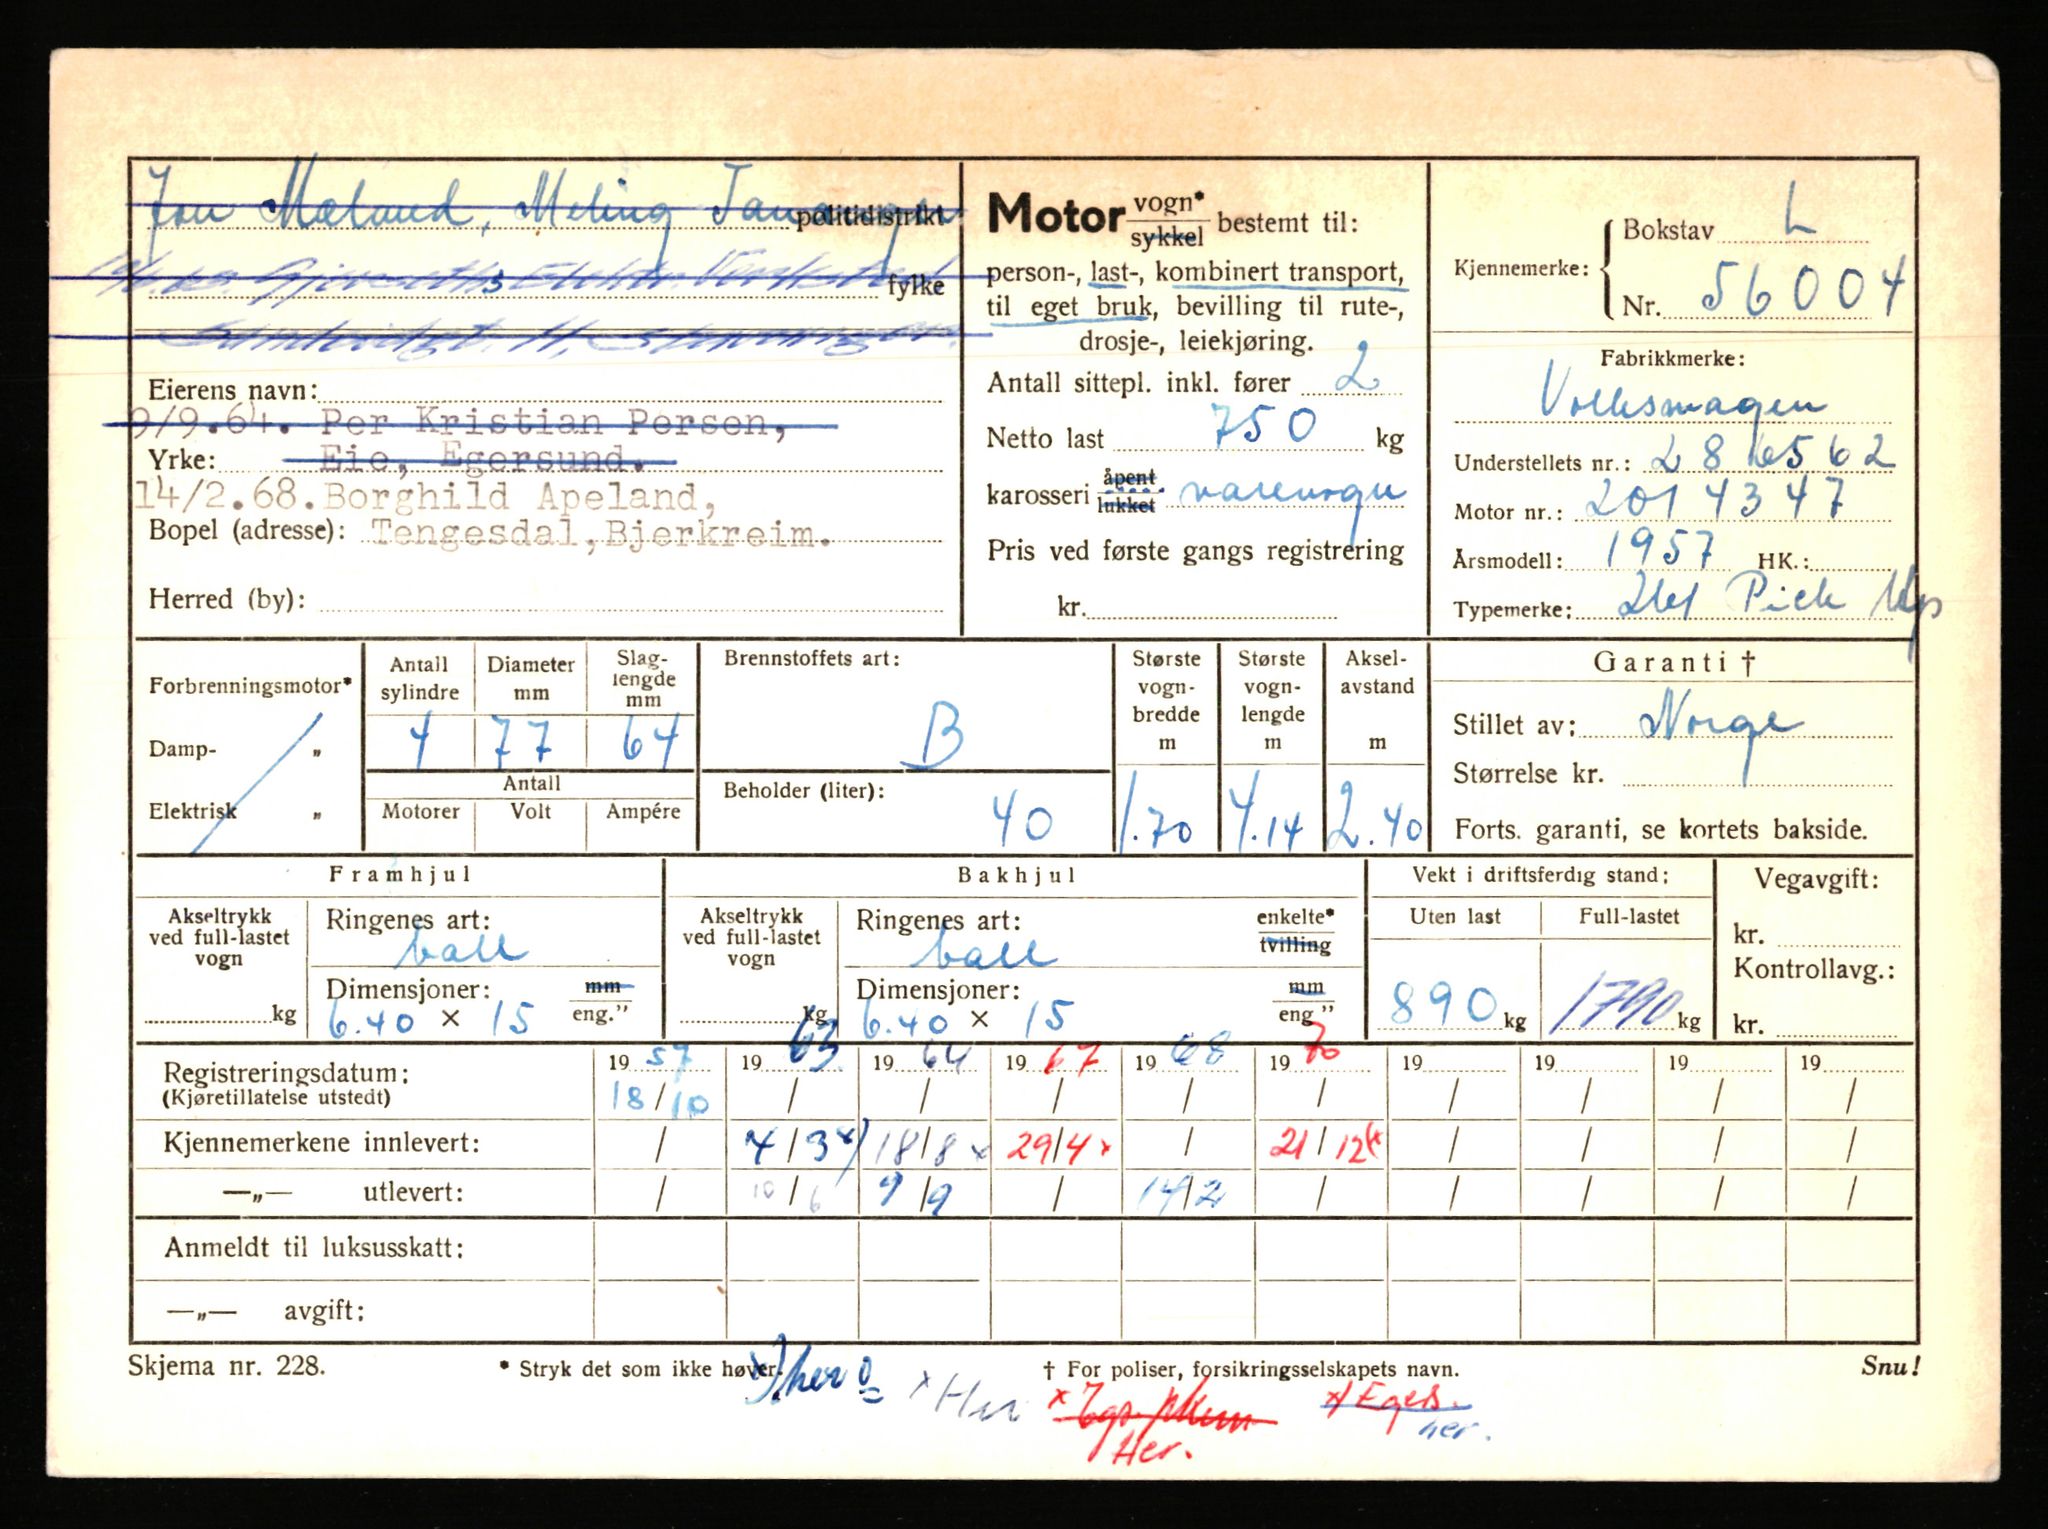 Jon Mæland, Meling Tananger politidistrikt
fylke
Eierens navn:
9/9.64. Per Kristian Persen,
Yrke: Eie, Egersund.
14/2.68. Borghild Apeland,
Bopel (adresse): Tengesdal, Bjerkreim.
Herred (by):
Motor vogn* sykkel bestemt til:
person-, last-, kombinert transport,
til eget bruk, bevilling til rute-,
drosje-, leiekjøring.
Antall sittepl. inkl. fører 2
Netto last 750 kg
karosseri åpent lukket varevogn
Pris ved første gangs registrering
kr.
Kjennemerke: Bokstav L
Nr. 56004
Fabrikkmerke:
Volkswagen
Understellets nr.: 286562
Motor nr.: 2014347
Årsmodell: 1957 HK.:
Typemerke: 261 Pick Up
Forbrenningsmotor*
Damp- „
Elektrisk „
Antall sylindre Diameter mm Slag- lengde mm
4 77 64
Antall
Motorer Volt Ampére
Brennstoffets art:
B
Beholder (liter):
40
Største vogn- bredde m
1.70
Største vogn- lengde m
4.14
Aksel- avstand m
2.40
Garanti †
Stillet av: Norge
Størrelse kr.
Forts. garanti, se kortets bakside.
Framhjul
Akseltrykk ved full-lastet vogn
kg
Ringenes art:
ball
Dimensjoner: mm eng."
6.40 × 15
Bakhjul
Akseltrykk ved full-lastet vogn
kg
Ringenes art: enkelte* tvilling
ball
Dimensjoner: mm eng"
6.40 × 15
Vekt i driftsferdig stand:
Uten last Full-lastet
890 kg 1790 kg
Vegavgift:
kr.
Kontrollavg.:
kr.
19 57 19 63 19 64 19 67 19 68 19 70 19 19 19 19
Registreringsdatum: 18/10 / / / / / / / / /
(Kjøretillatelse utstedt)
Kjennemerkene innlevert: / 4/3 x) 18/8 x 29/4 x / 21/12 x / / / /
—„— utlevert: / 10/6 9/9 / 14/2 / / / / /
Anmeldt til luksusskatt:
—„— avgift:
Skjema nr. 228.
* Stryk det som ikke høver.
† For poliser, forsikringsselskapets navn.
Snu!
x) her
x Her
x
Her.
x) Egers.
her.